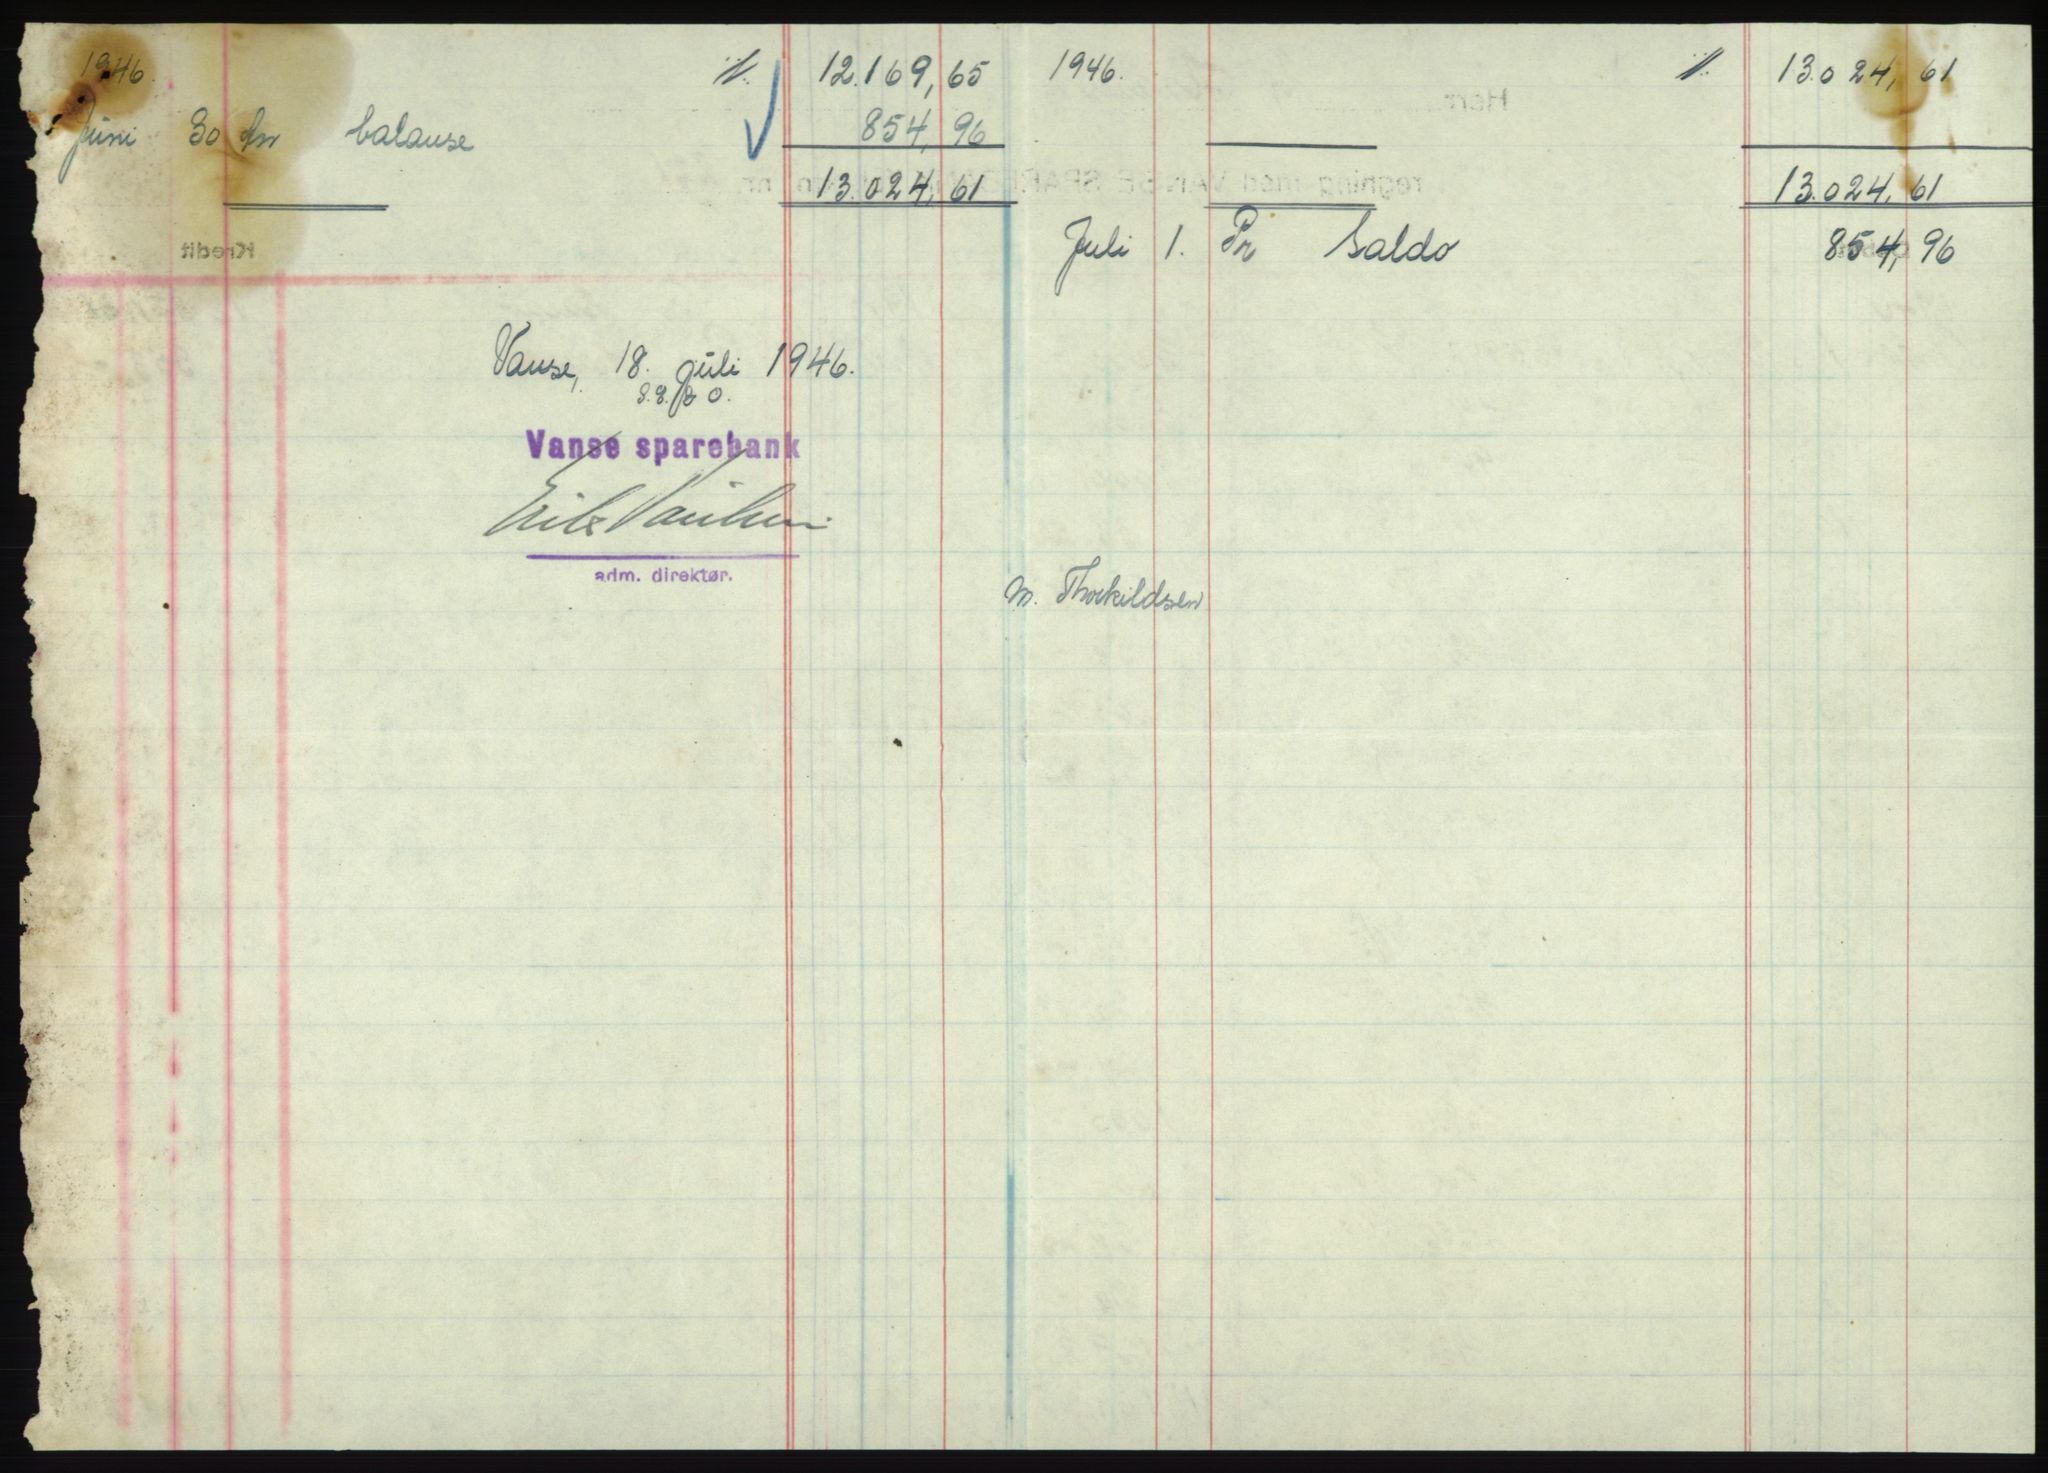 1946. 12.169,65
Juni 30 An balanse 854,96
13.024,61
Vanse, 18. juli 1946.
Vanse sparebank
adm. direktør.
1946. 13.024,61
13.024,61
Juli 1. Pr Saldo 854,96
M. Thorkildsen